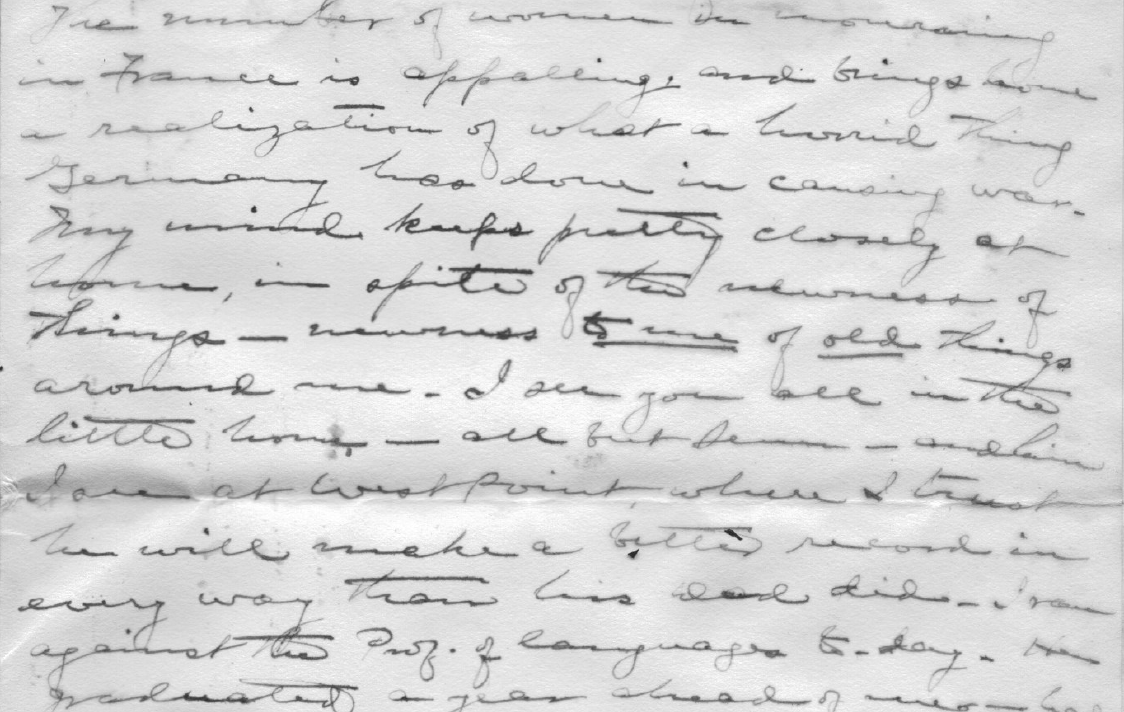 The number of women in mourning
in France is appalling, and brings home
a realization of what a horrid thing
Germany has done in causing war.
My mind keeps pretty closely at
home, in spite of the newness of
things — newness to me of old things
around me. I see you all in the
little home, — all but — and him
I see at West Point, where I trust
he will make a better record in
every way than his dad did. — I ran
against the Prof. of languages to-day. He
graduated a year ahead of me —